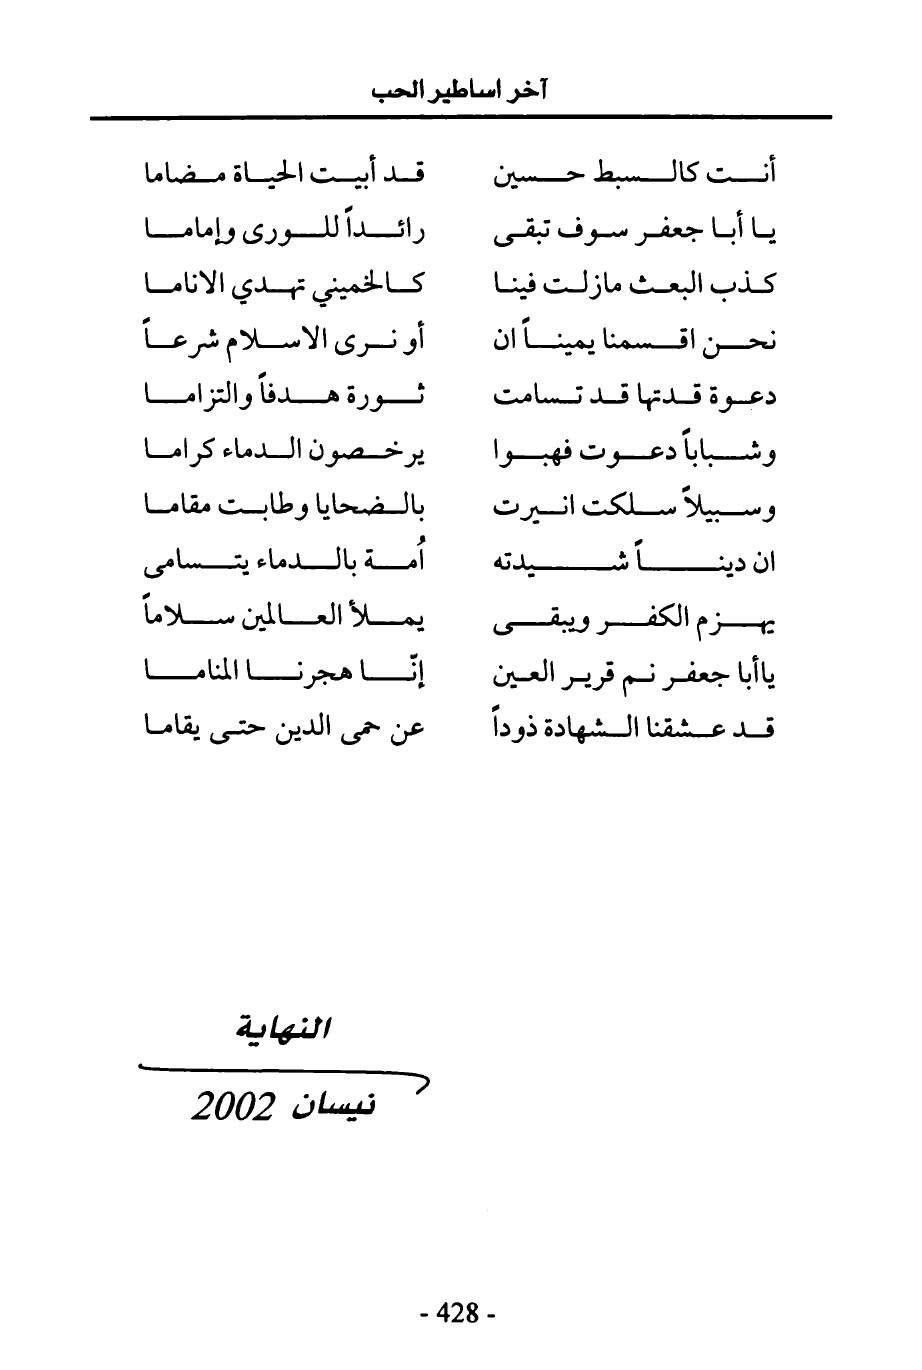 آخر اساطير الحب
أنت كالسبط حسين قد أبيت الحياة مضاما
يا أبا جعفر سوف تبقى رائداً للورى وإماما
كذب البعث مازلت فينا كالخميني تهدي الاناما
نحن اقسمنا يميناً ان أو نرى الاسلام شرعاً
دعوة قدتها قد تسامت ثورة هدفاً والتزاما
وشباباً دعوت فهبوا يرخصون الدماء كراما
وسبيلاً سلكت انيرت بالضحايا وطابت مقاما
ان ديناً شيدته أُمة بالدماء يتسامى
يهزم الكفر ويبقى يملأ العالمين سلاماً
ياأبا جعفر نم قرير العين إنّا هجرنا المناما
قد عشقنا الشهادة ذوداً عن حمى الدين حتى يقاما
النهاية
نيسان 2002
- 428 -